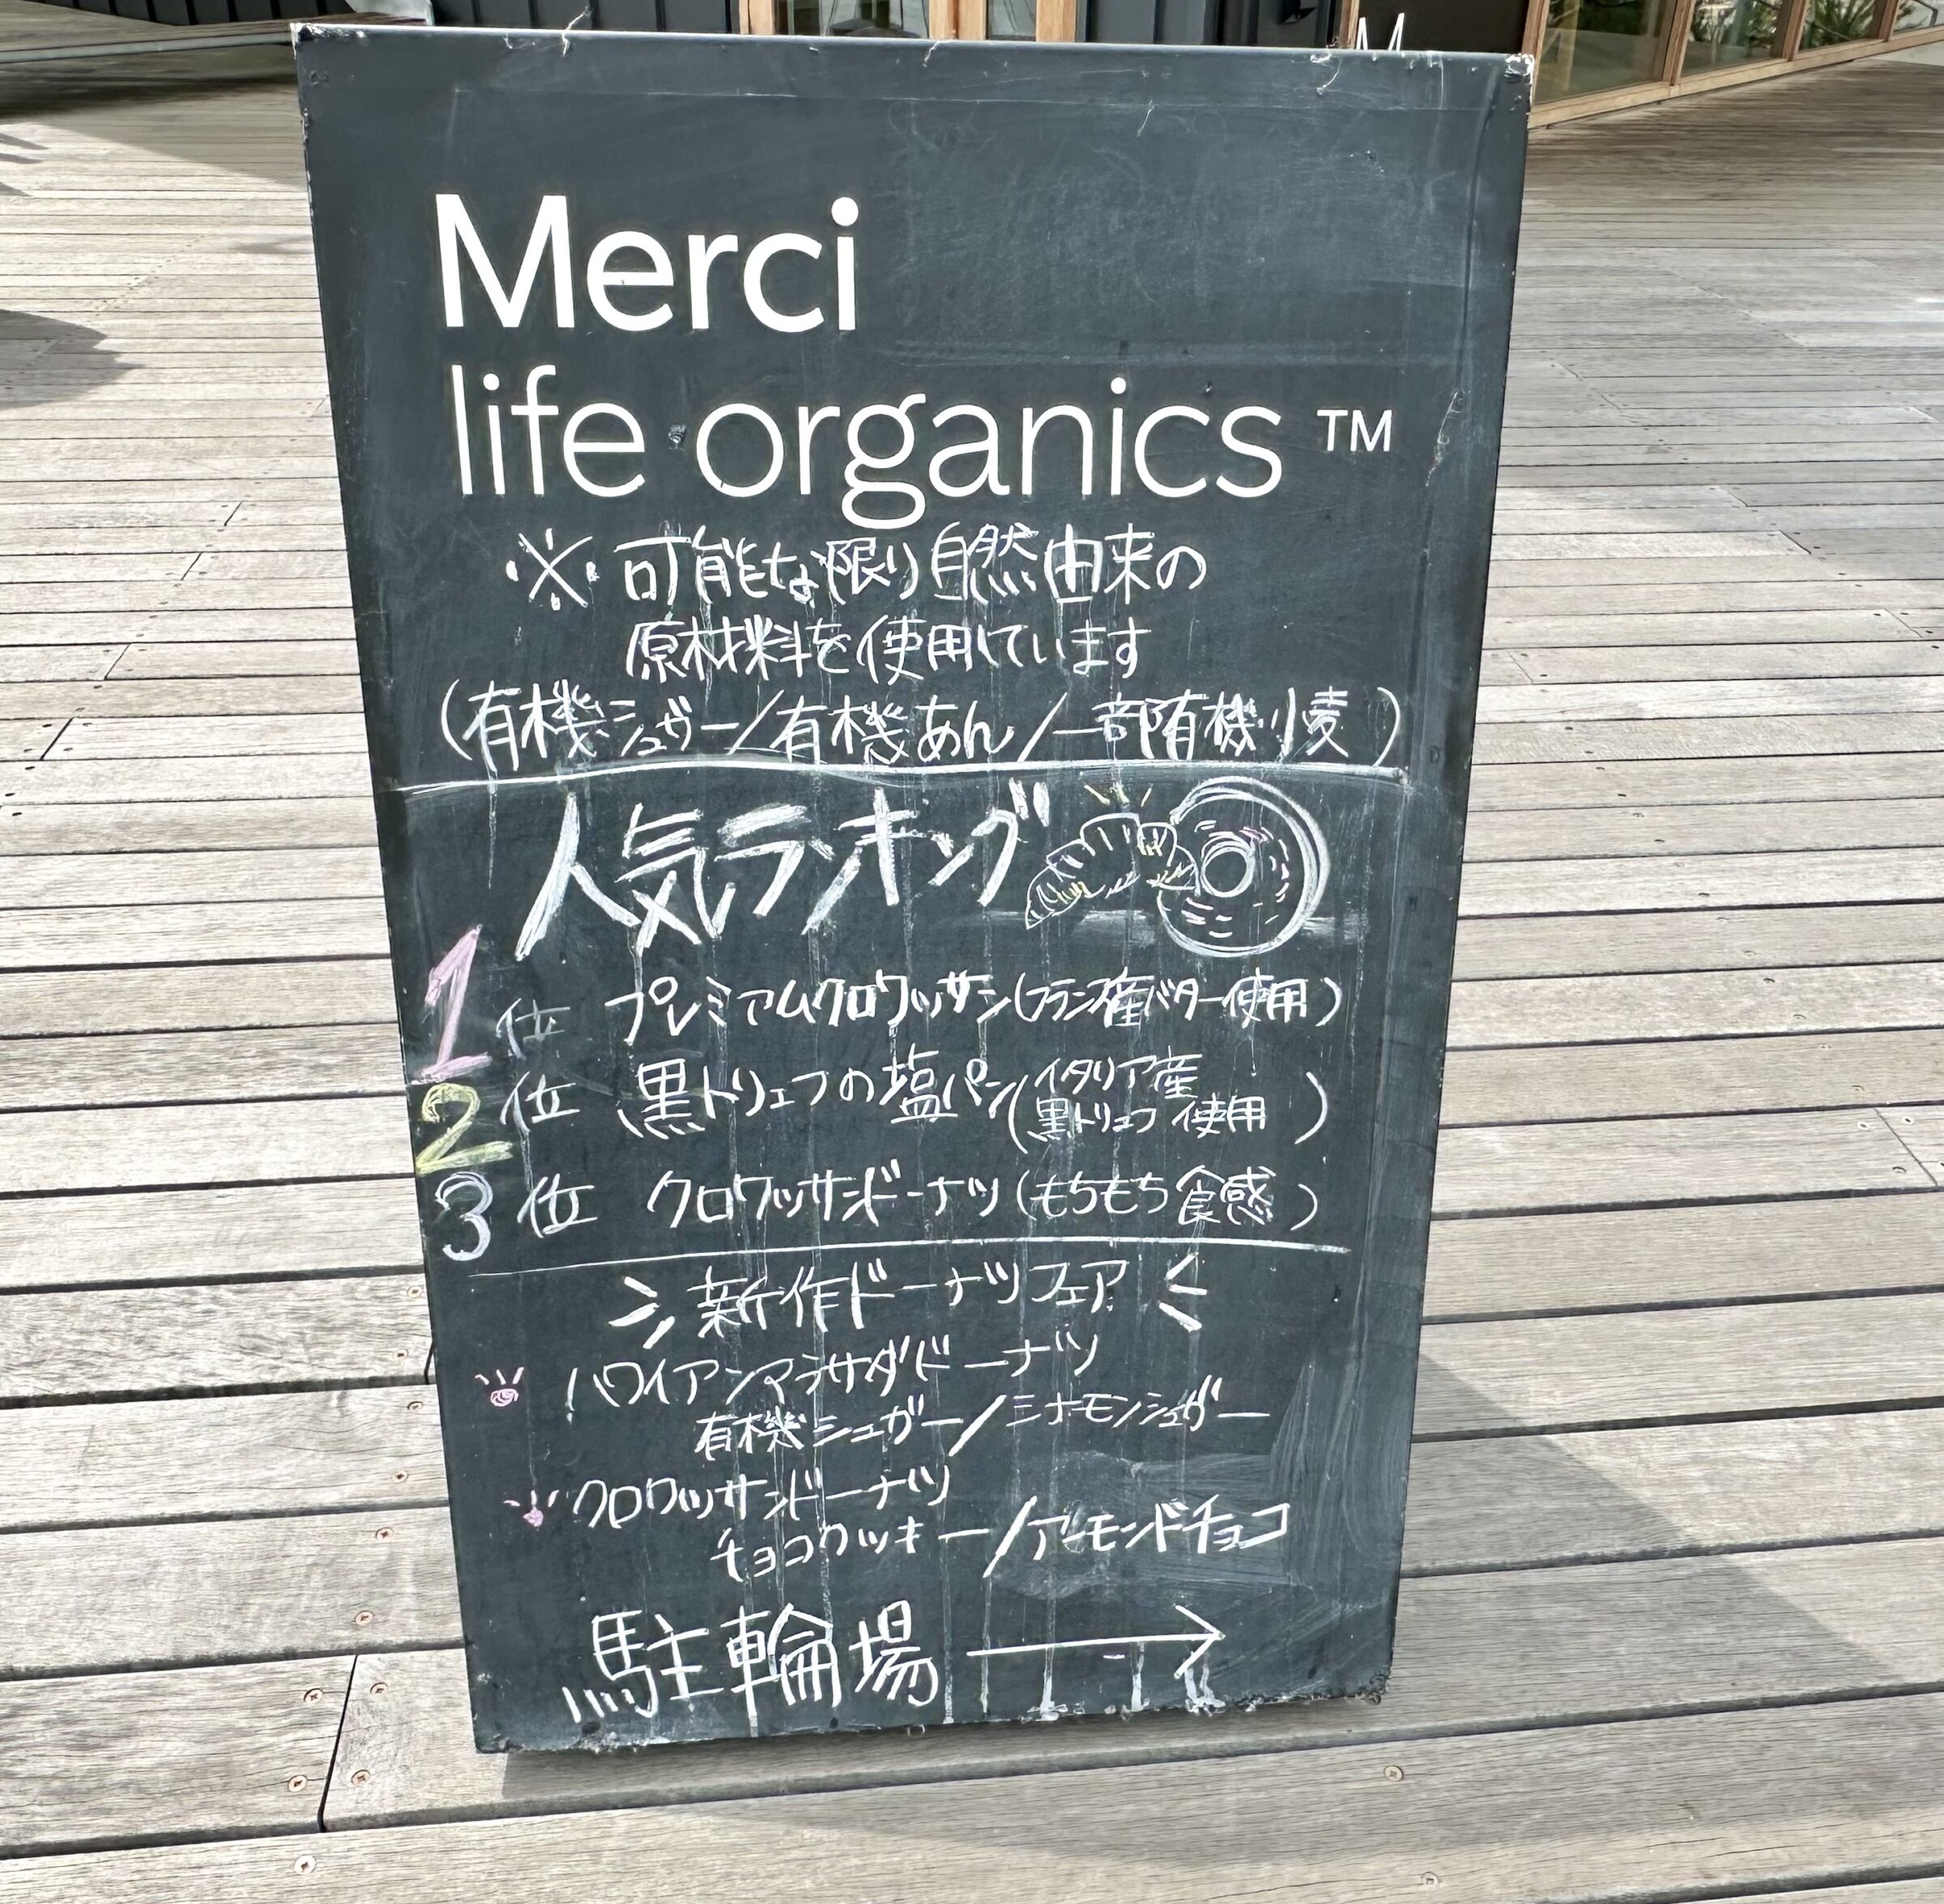 Merci
life organics™
※可能な限り自然由来の
原材料を使用しています
(有機シュガー/有機あん/一部有機小麦)
人気ランキング
1位 プレミアムクロワッサン(フランス産バター使用)
2位 黒トリュフの塩パン(イタリア産
黒トリュフ使用)
3位 クロワッサンドーナツ(もちもち食感)
新作ドーナツフェア
ハワイアンマラサダドーナツ
有機シュガー/シナモンシュガー
クロワッサンドーナツ
チョコクッキー/アーモンドチョコ
駐輪場→